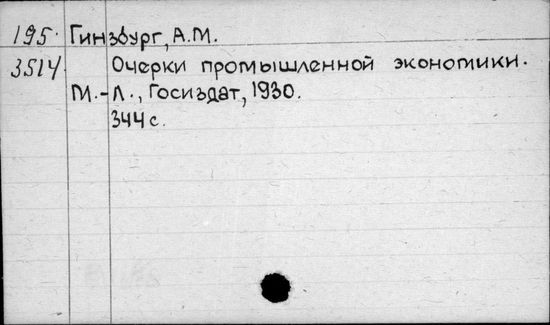 195. Гинзбург, А.М.
3514 Очерки промышленной экономики.
М.-Л., Госиздат, 1930.
344 с.